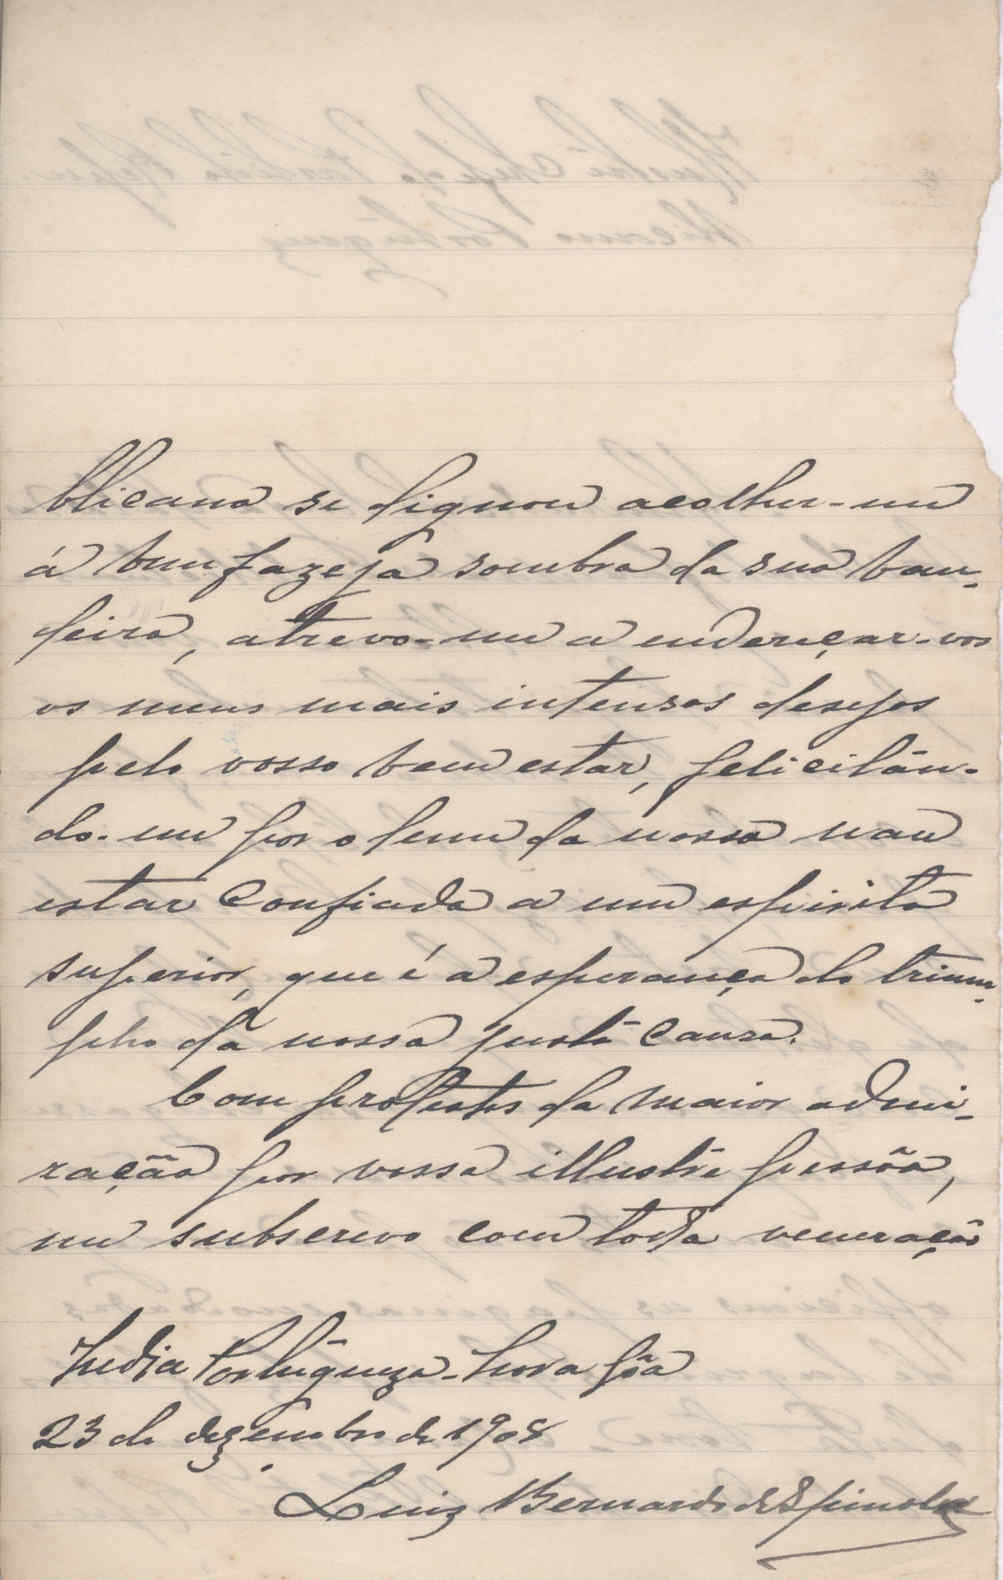 blicano se dignou acolher-me
á bemfazeja sombra da sua ban-
deira, atrevo-me a endereçar-vos
os meus mais intensos desejos
pelo vosso bem estar, felicitân-
do-me por o leme da nossa nau
estar confiada a um espirito
superior, que é a esperança do trium-
pho da nossa justa causa.
Com protestos da maior admi-
ração por vossa illustre pessôa,
me subscrevo com toda veneração
India Portugueza-Nova Gôa
23 de dezembro de 1908
Luiz Bernardo de Espinola